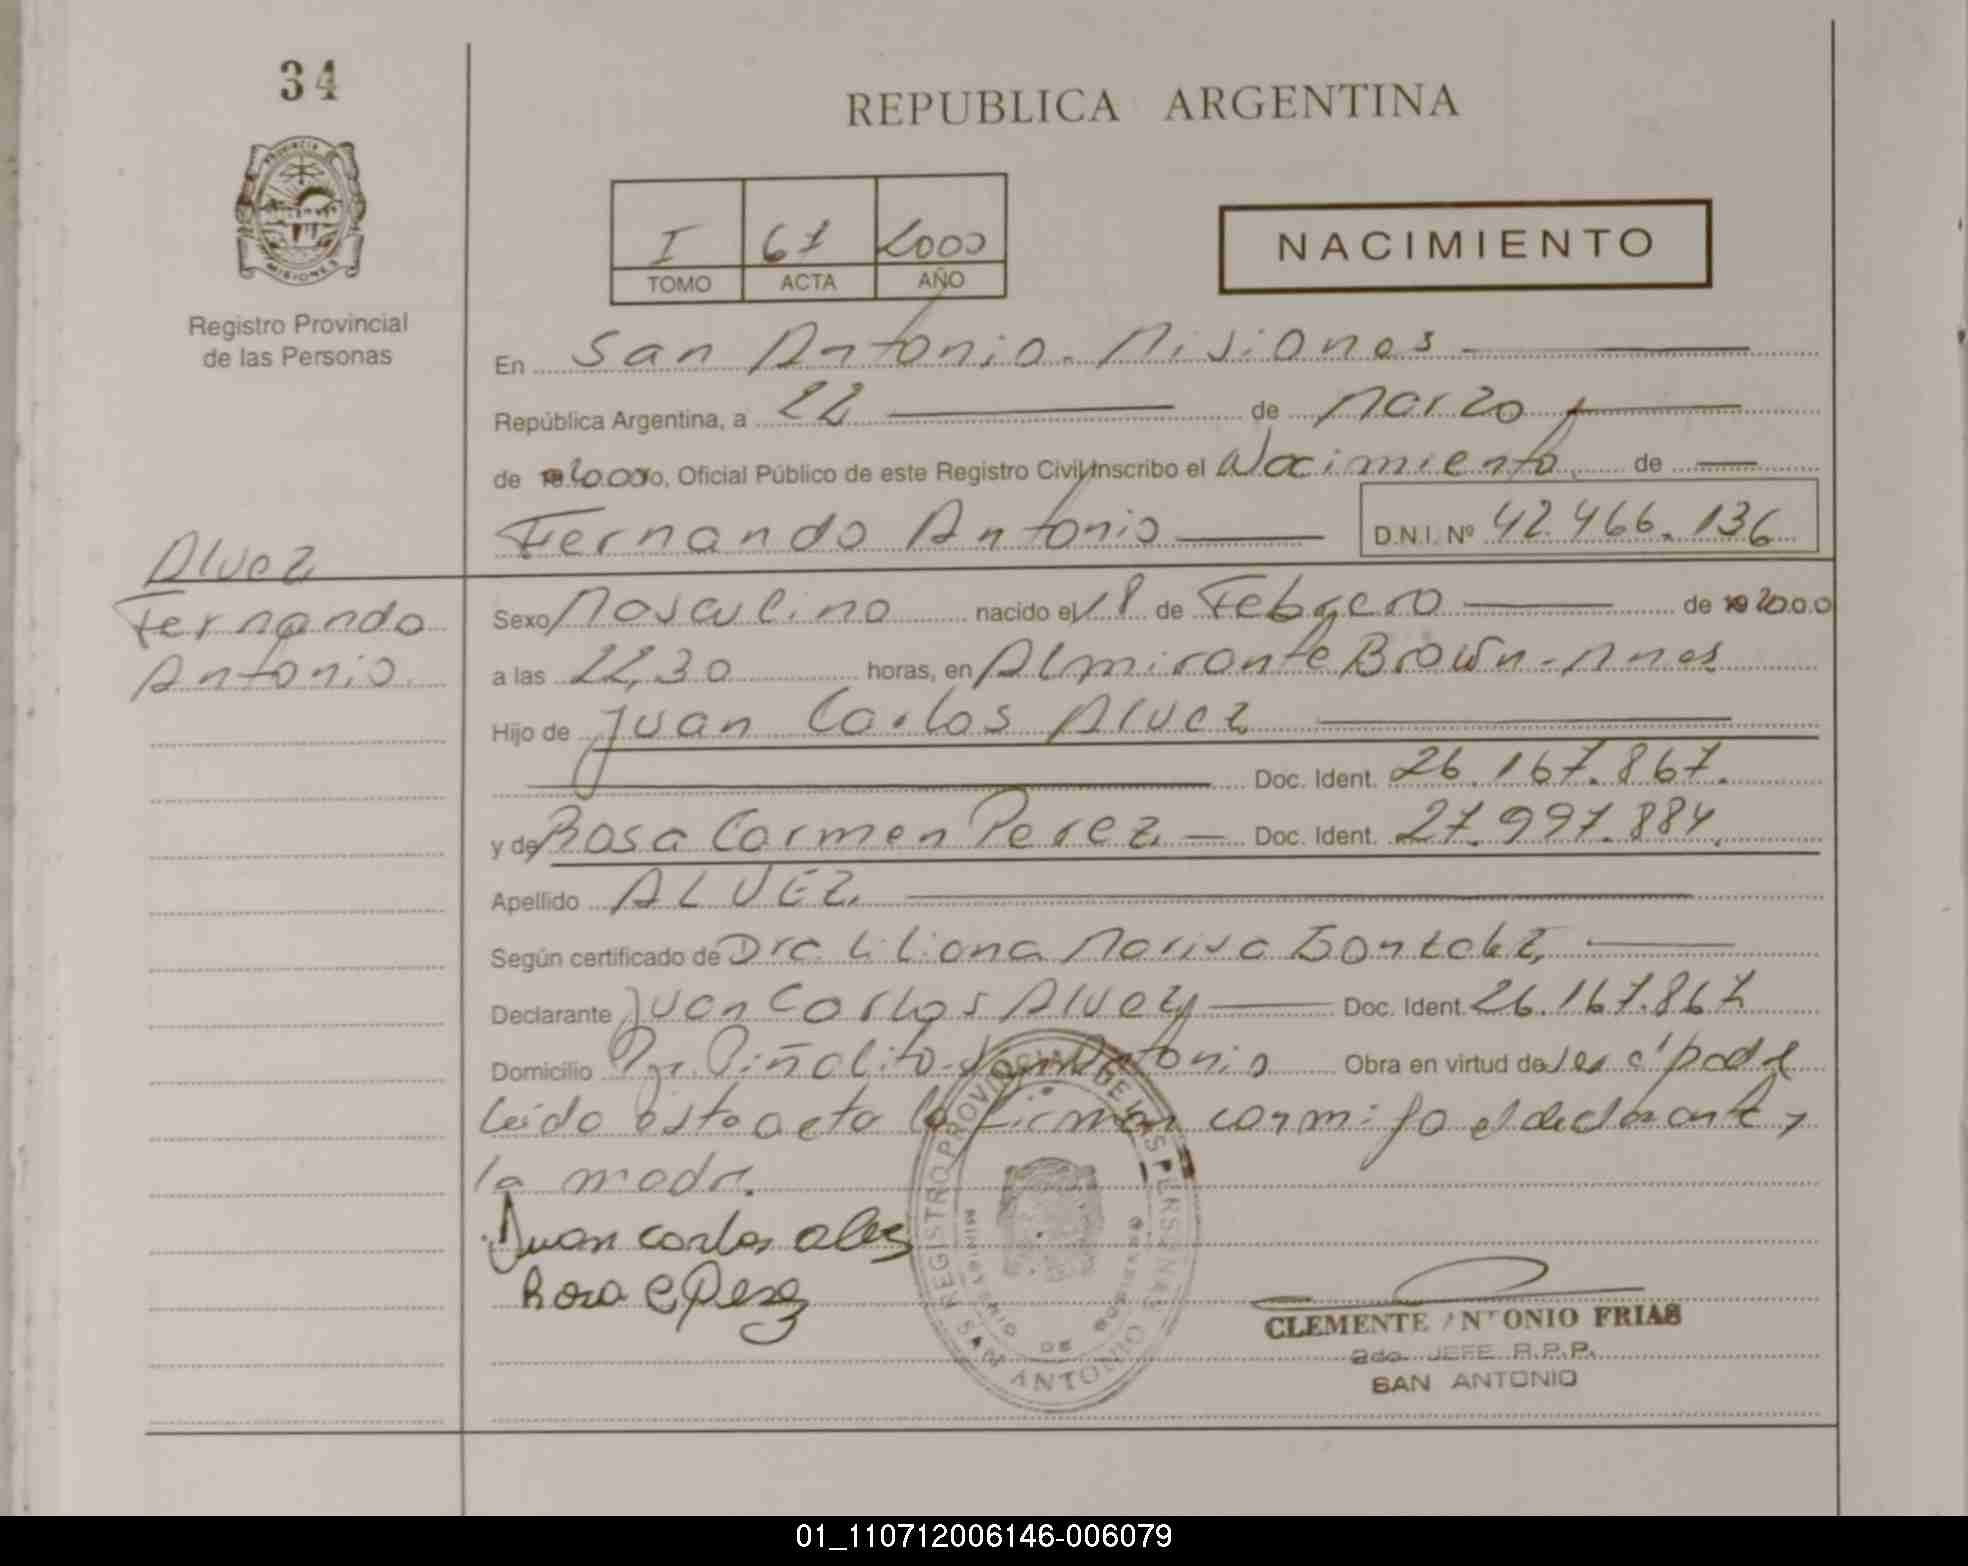 34
REPUBLICA ARGENTINA
PROVINCIA
MISIONES
Registro Provincial
de las Personas
I 61 2000
TOMO ACTA AÑO
NACIMIENTO
En San Antonio - Misiones
República Argentina, a 22 de Marzo
de 2000 yo, Oficial Público de este Registro Civil Inscribo el Nacimiento de
Fernando Antonio D.N.I. Nº 42.466.136
Alvez
Fernando
Antonio
Sexo Masculino nacido el 18 de Febrero de 19 2000
a las 22,30 horas, en Almirante Brown - Mnes
Hijo de Juan Carlos Alvez
Doc. Ident. 26.167.867.
y de Rosa Carmen Perez Doc. Ident. 27.997.884
Apellido ALVEZ
Según certificado de Dra. Liliana Marisa Gonzalez
Declarante Juan Carlos Alvez Doc. Ident. 26.167.867
Domicilio Piñalito - San Antonio Obra en virtud de ser el padre
Leída esta acta la firman conmigo el declarante y
la madre.
Juan carlos alves
Rosa C Perez
REGISTRO PROVINCIAL DE LAS PERSONAS
MINISTERIO DE GOBIERNO
SAN ANTONIO
CLEMENTE ANTONIO FRIAS
2do. JEFE R.P.P.
SAN ANTONIO
01_110712006146-006079